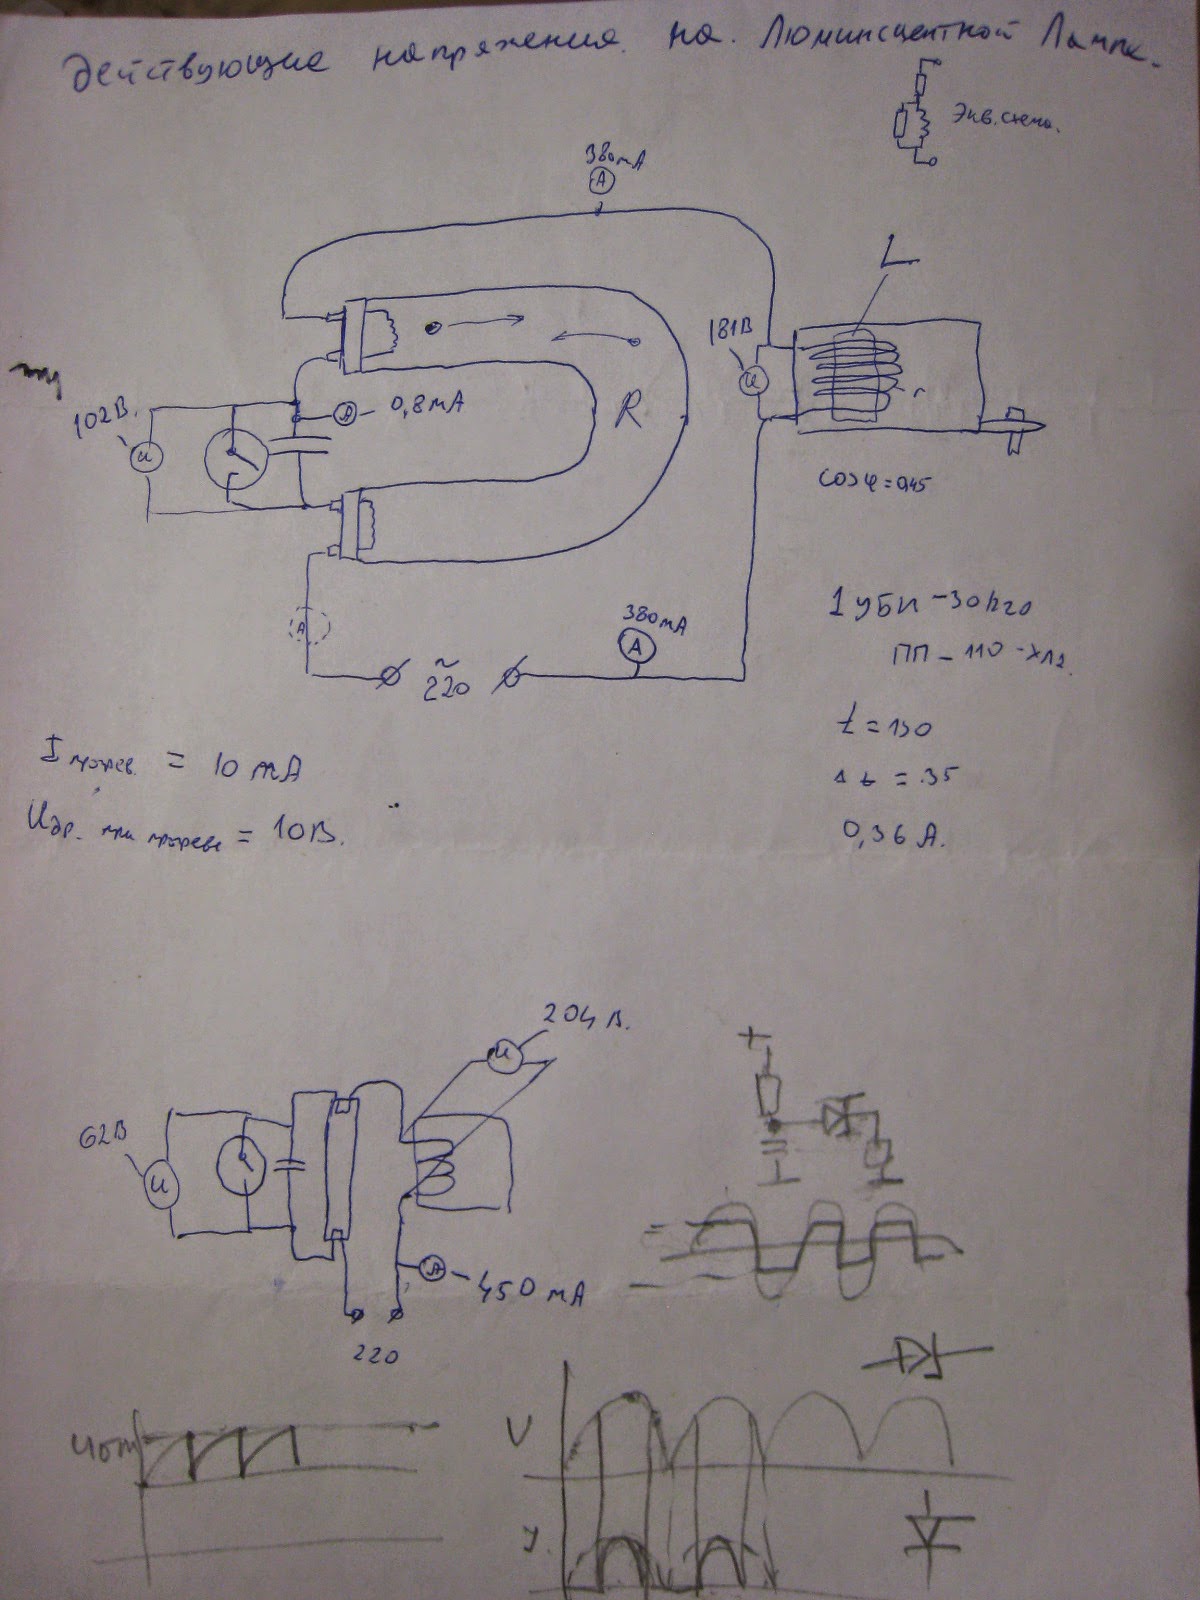 Действующие напряжения. на. Люминсцентной Лампе.
Экв. схема.
380mA
A
L
181В
u
102В.
u
A
0,8mA
R
r
cosφ=0,45
A
380mA
A
~
220
1УБИ-30/220
ПП-110-ХЛ2.
t=130
Δt=35
0,36 А.
I прогрев. = 10 mA
Uдр. при прогреве = 10В.
204 В.
u
62В
u
+
A
450 mA
220
=
Uот
U